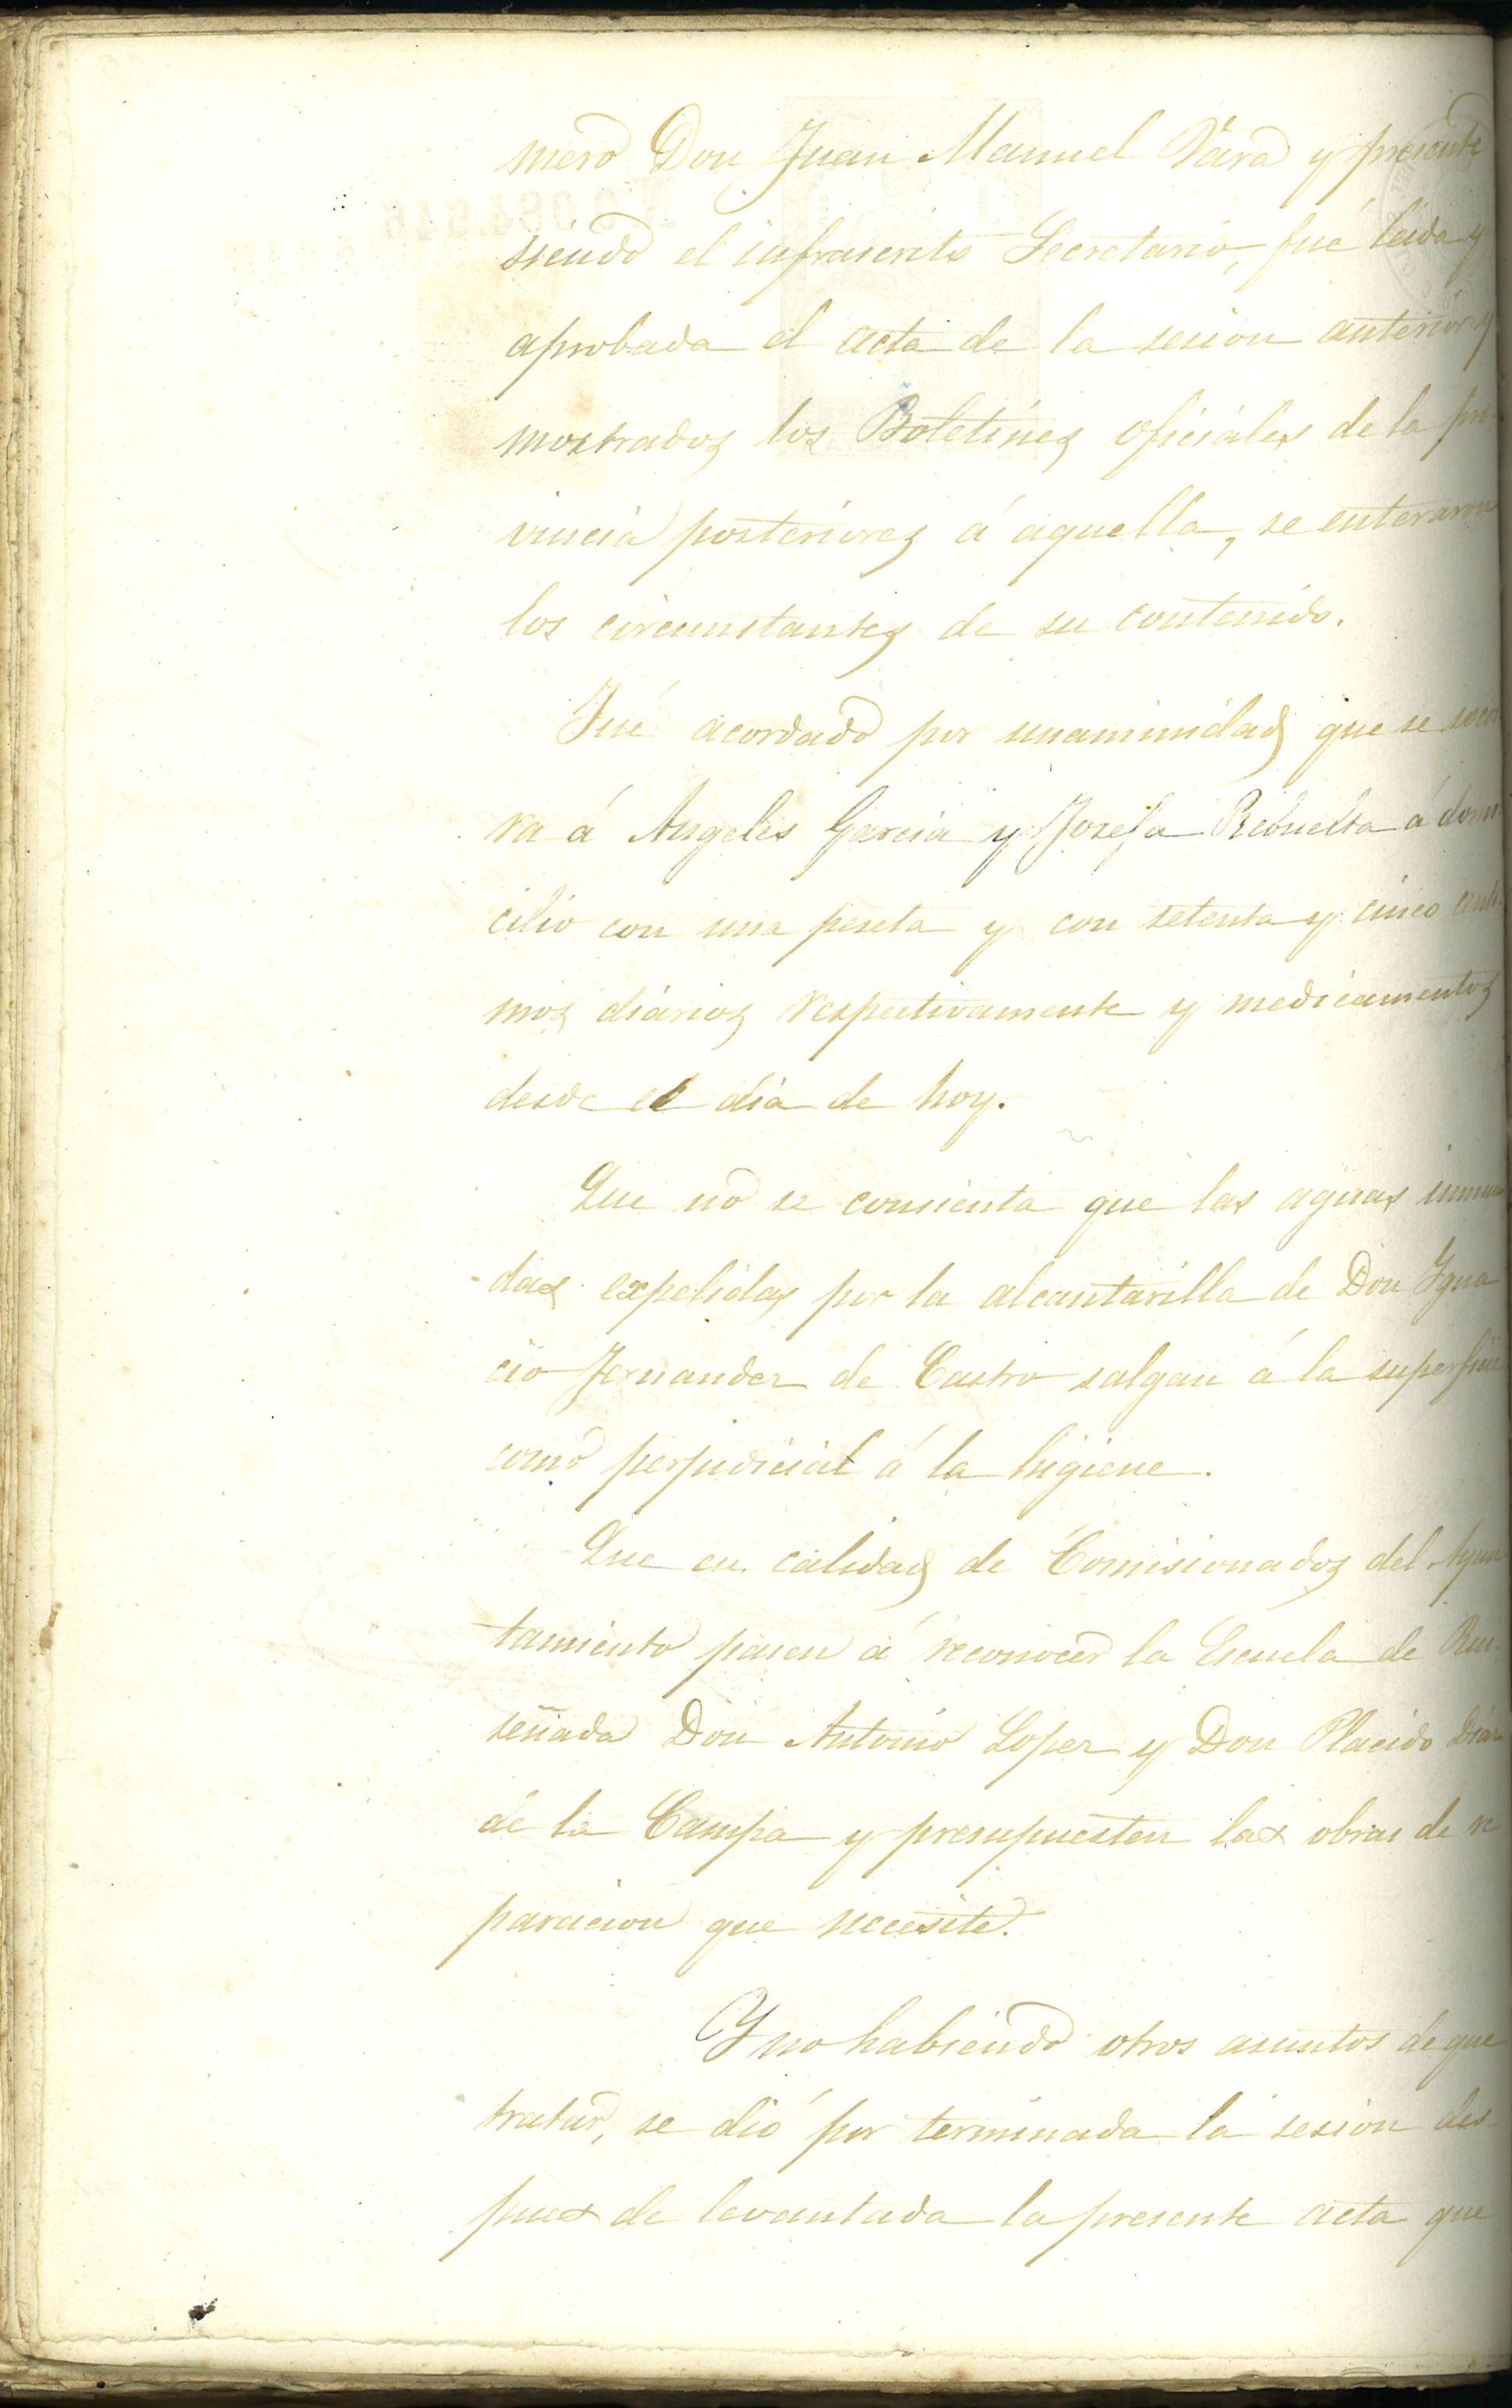 mero Don Juan Manuel Vara y presente
siendo el infrascrito Secretario, fué leida y
aprobada el acta de la sesion anterior y
mostrados los Boletines oficiales de la pro-
vincia posteriores á aquella, se enteraron
los circunstantes de su contenido.
Fué acordado por unanimidad que se socor
ra á Angeles Garcia y Josefa Rebuelta á domi
cilio con una peseta y con setenta y cinco centi
mos diarios respectivamente y medicamentos
desde el dia de hoy.
Que no se consienta que las aguas inmun
das expelidas por la alcantarilla de Don Igna
cio Fernandez de Castro salgan á la superficie
como perjudicial á la higiene.
Que en calidad de Comisionados del Ayun
tamiento pasen á reconocer la Escuela de Rui
señada Don Antonio Lopez y Don Placido Diaz
de la Campa y presupuesten las obras de re
paracion que necesite.
Y no habiendo otros asuntos de que
tratar, se dió por terminada la sesion des-
pues de levantada la presente acta que